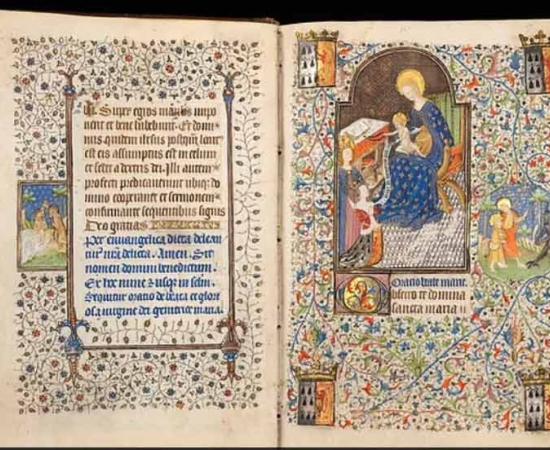 Super egros manus impo
nent et bene habebunt. Et domi
nus quidem ihesus postqm̄ locut
est eis assumptus est in celum
et sedet a dextris dei. Illi autem
profecti predicauerunt ubiqꝫ do
mino cooperante et sermonem
confirmante sequentibus signis
Deo gratias
Per euuangelica dicta delean
tur nr̄a delicta. Amen. Sit
nomen domini benedictum.
Ex hoc nunc & usqꝫ in sclm̄.
Sequitur oratio de beata et glori
osa uirgine dei genitrice maria.
Oratio beate marie.
bsecro te domina
sancta maria